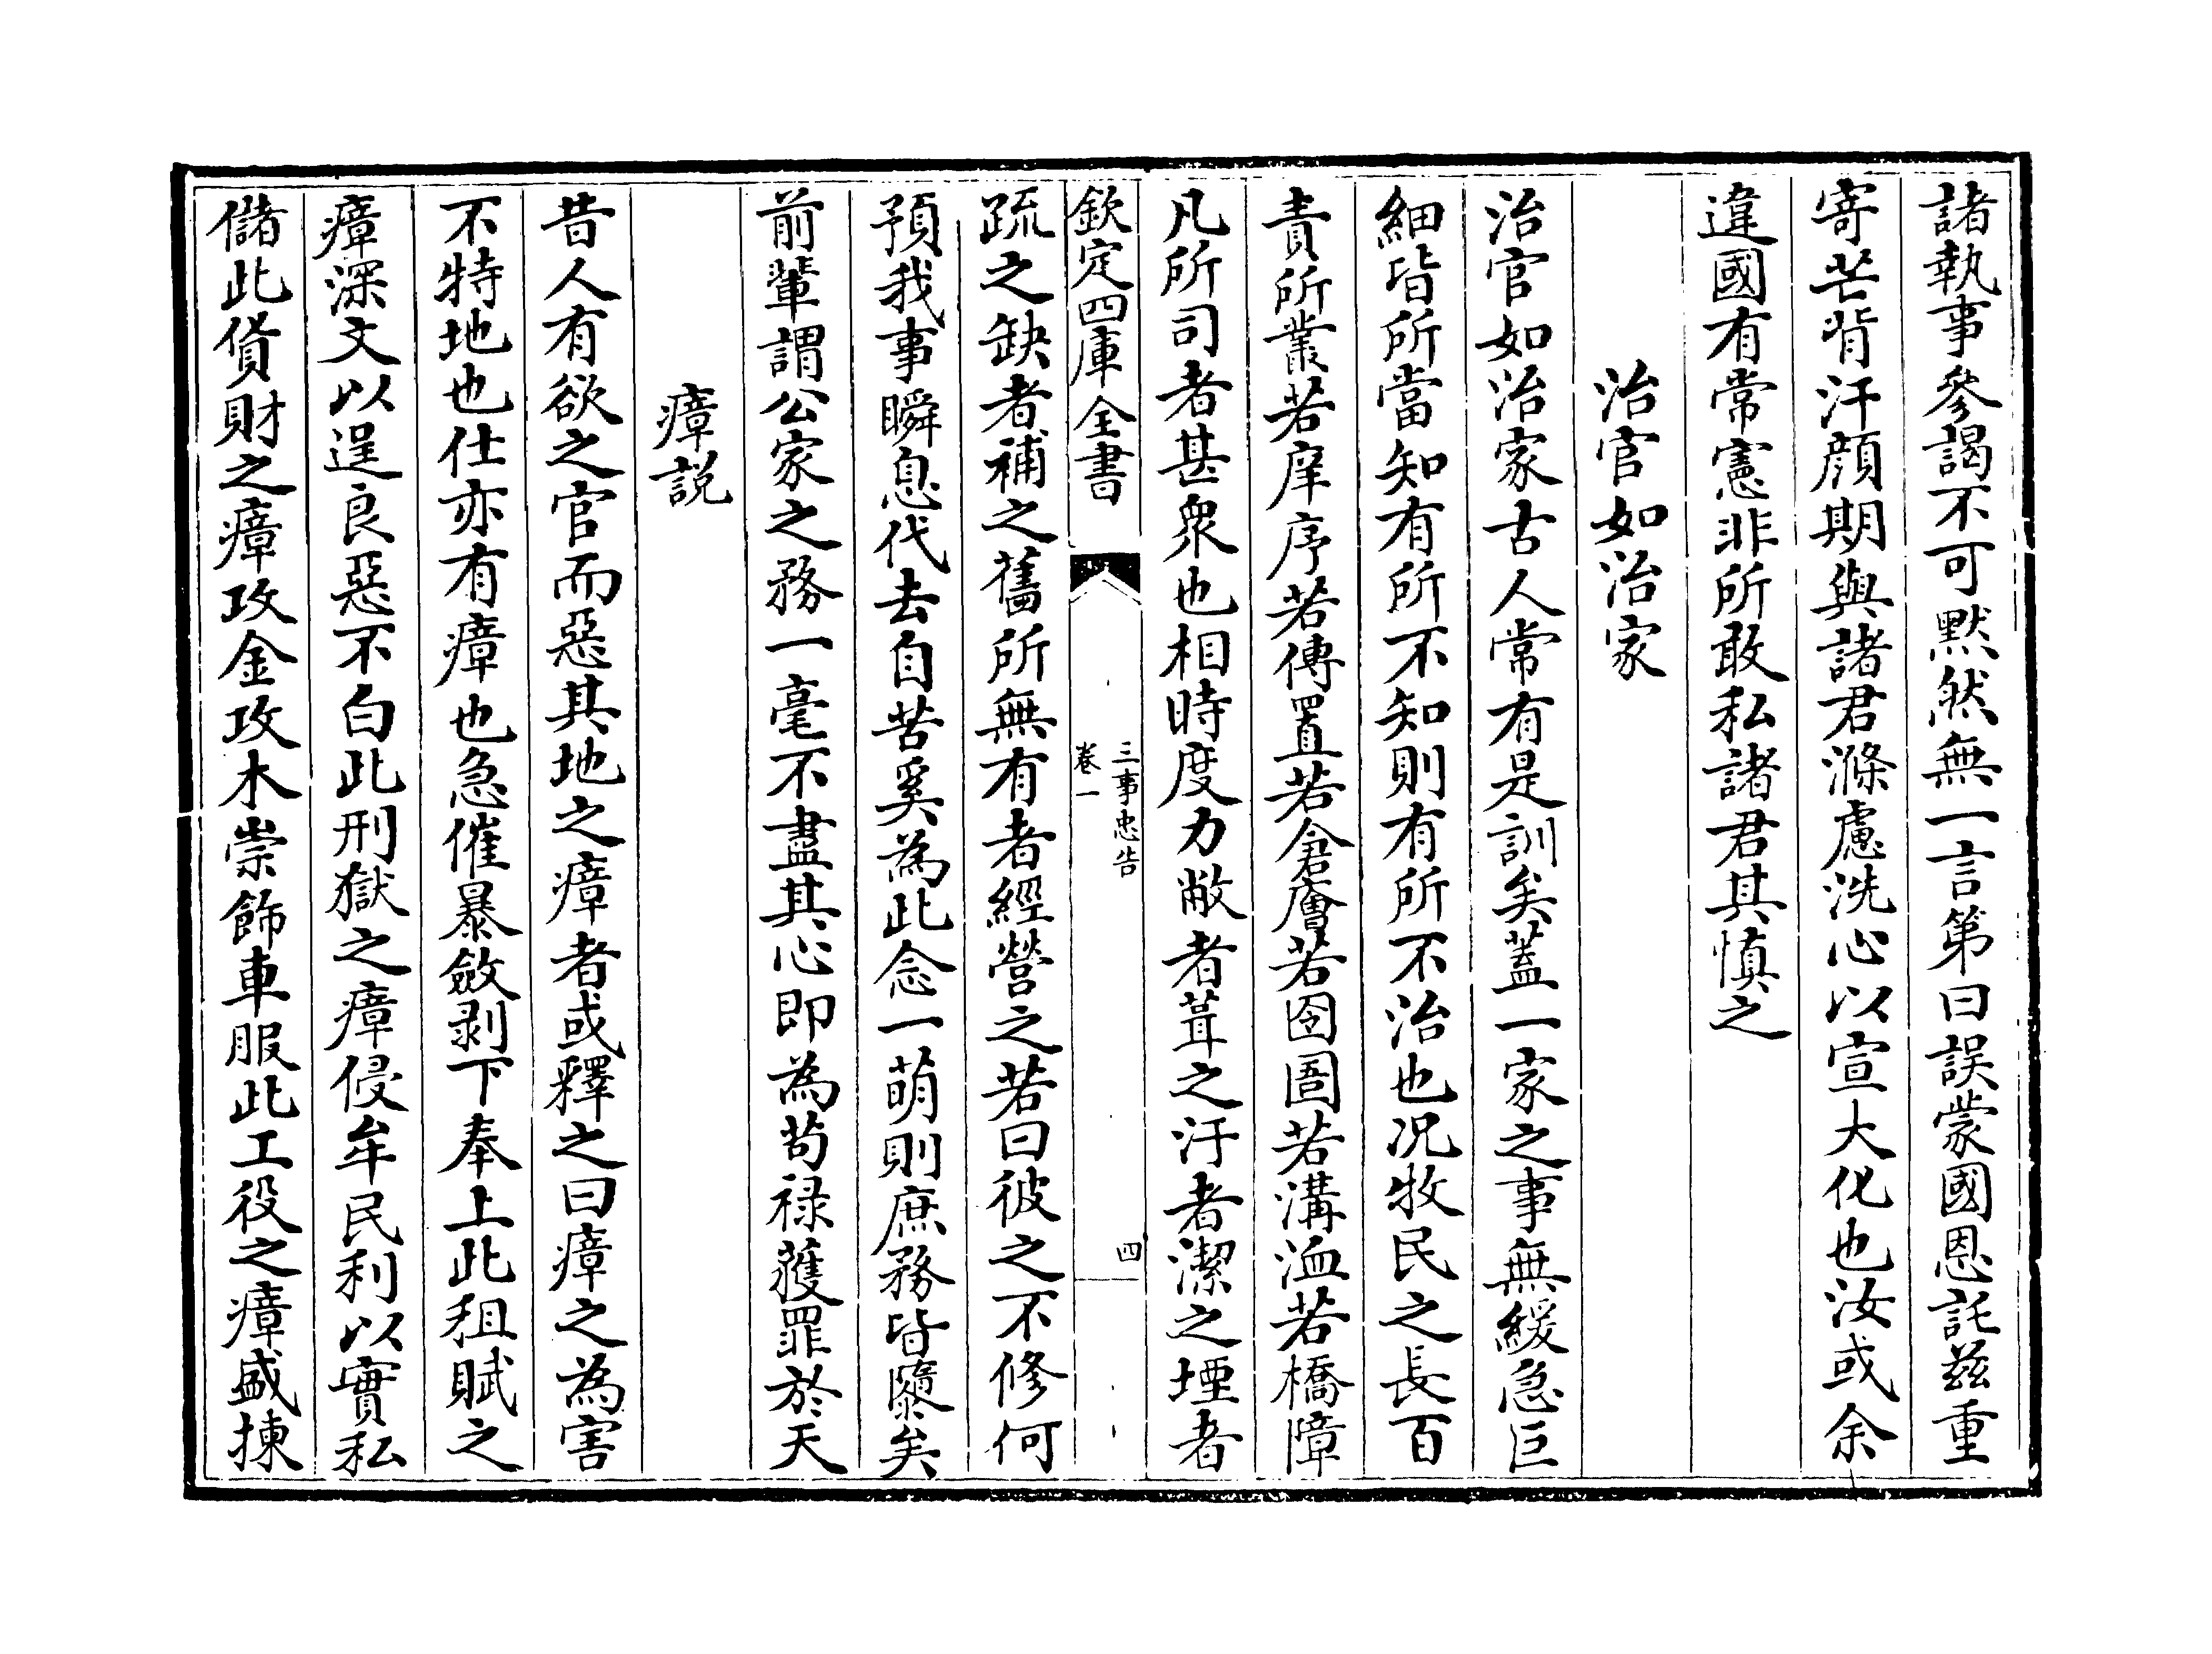 諸執事參謁不可默然無一言第曰誤蒙國恩託兹重
寄芒背汗顔期與諸君滌慮洗心以宣大化也汝或余
違國有常憲非所敢私諸君其慎之
治官如治家
治官如治家古人常有是訓矣蓋一家之事無緩急巨
細皆所當知有所不知則有所不治也况牧民之長百
責所叢若庠序若傳置若倉廥若囹圄若溝洫若橋障
凡所司者甚衆也相時度力敝者葺之汙者潔之堙者
欽定四庫全書
三事忠告
卷一
四
疏之缺者補之舊所無有者經營之若曰彼之不修何
預我事瞬息代去自苦奚為此念一萌則庶務皆隳矣
前輩謂公家之務一毫不盡其心即為苟禄獲罪於天
瘴説
昔人有欲之官而惡其地之瘴者或釋之曰瘴之為害
不特地也仕亦有瘴也急催暴斂剥下奉上此租賦之
瘴深文以逞良惡不白此刑獄之瘴侵牟民利以實私
儲此貨財之瘴攻金攻木崇飾車服此工役之瘴盛揀